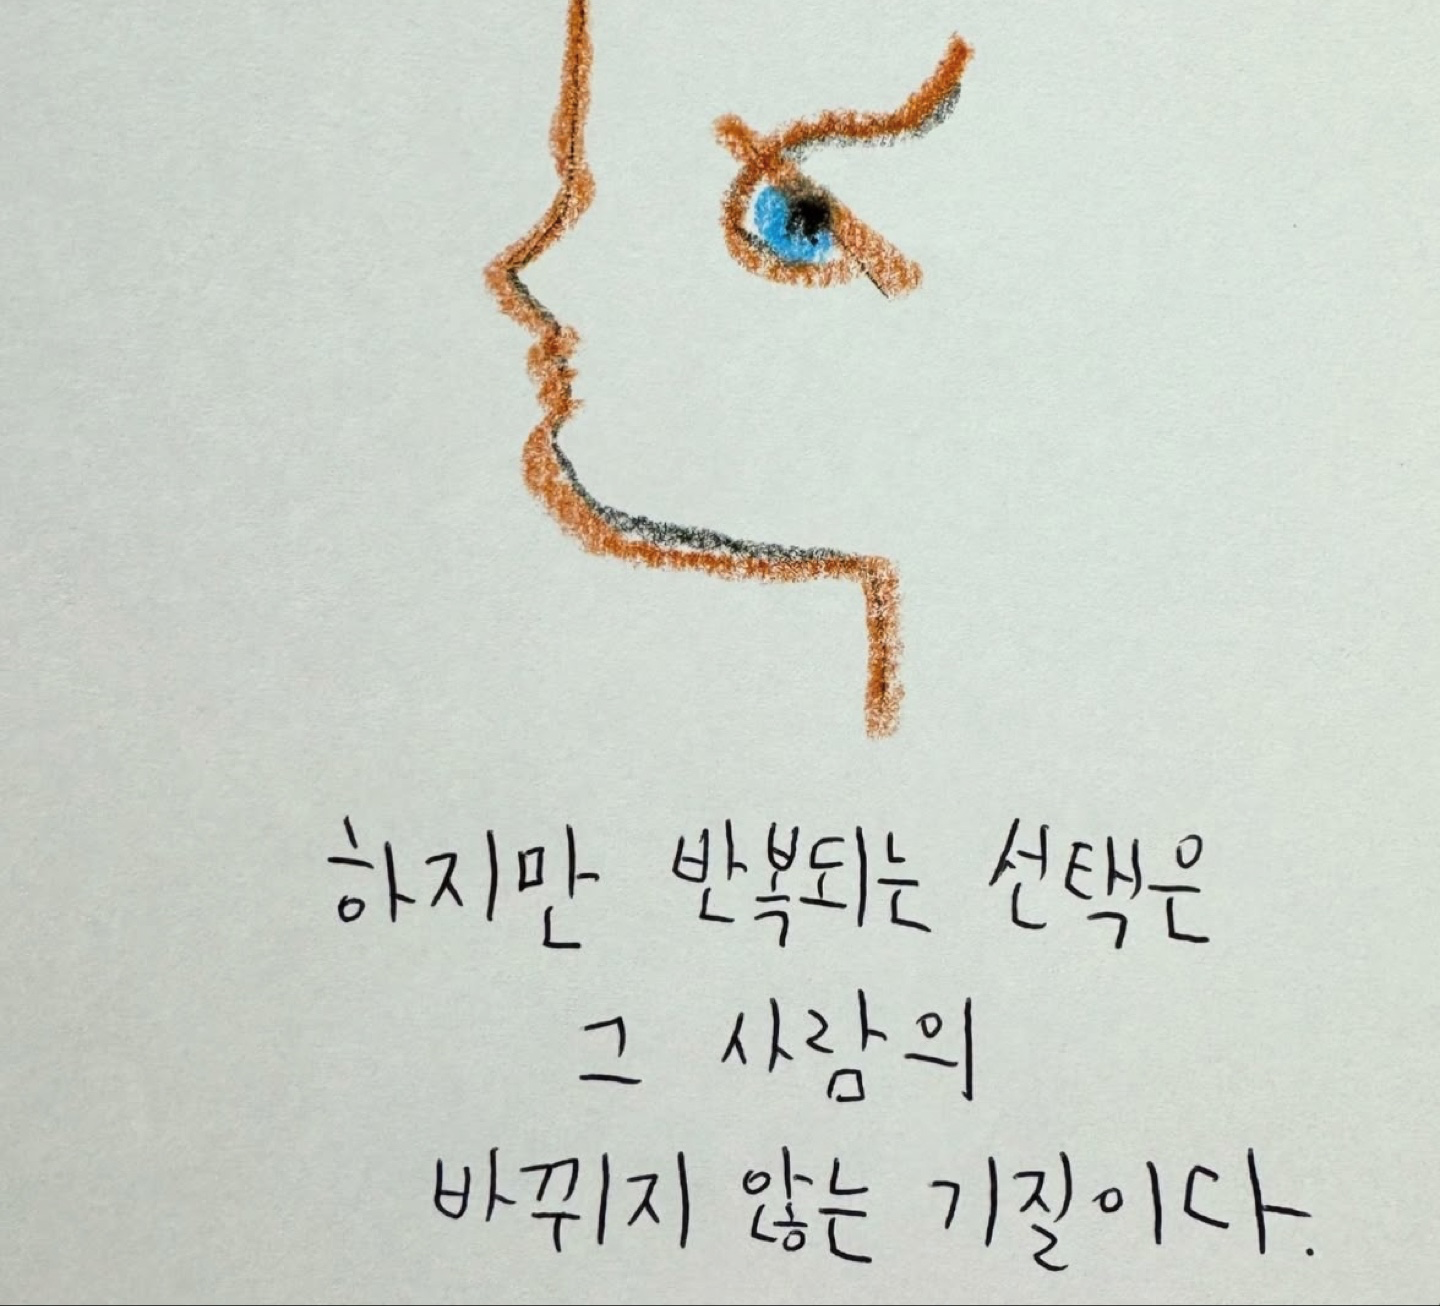 하지만 반복되는 선택은
그 사람의
바뀌지 않는 기질이다.